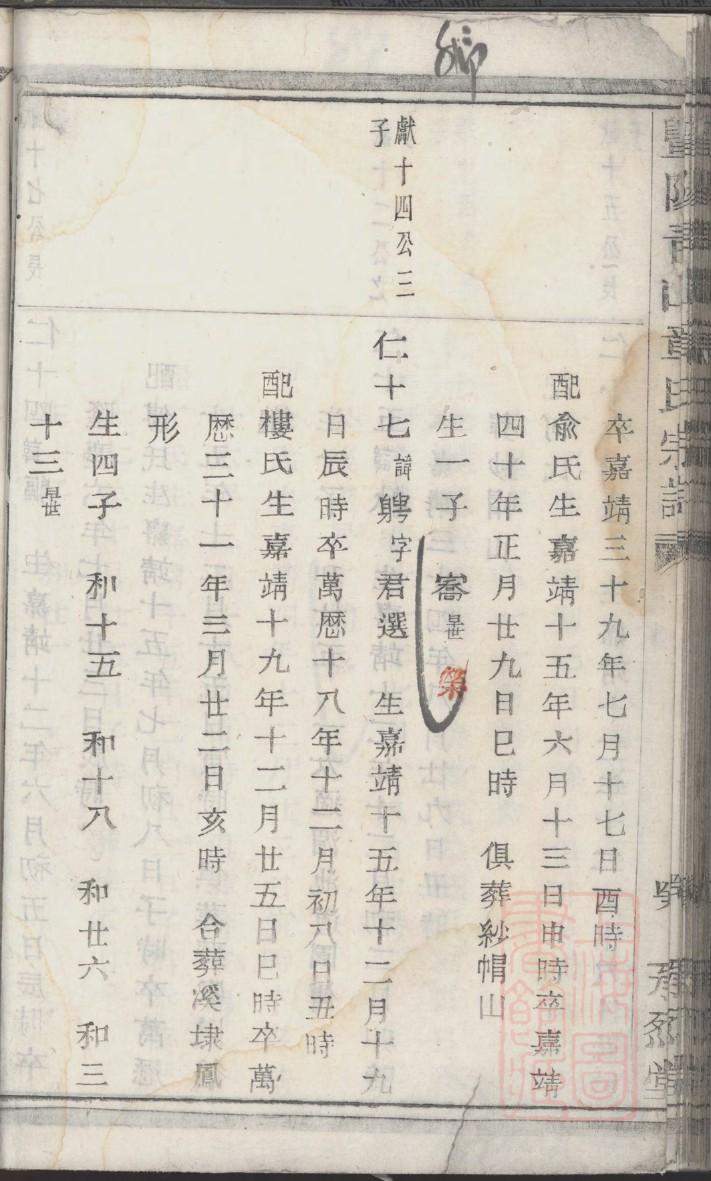 暨陽青山章氏宗譜
承烈堂
卒嘉靖三十九年七月十七日酉時
配俞氏生嘉靖十五年六月十三日申時卒嘉靖
四十年正月廿九日巳時 俱葬紗帽山
生一子 審 榮
獻十四公三
子
仁十七諱騁字君選 生嘉靖十五年十二月十九
日辰時卒萬歷十八年十二月初八日丑時
配樓氏生嘉靖十九年十二月廿五日巳時卒萬
歷三十一年三月廿二日亥時 合葬溪埭鳳
形
生四子 和十五 和十八 和廿六 和三
十三